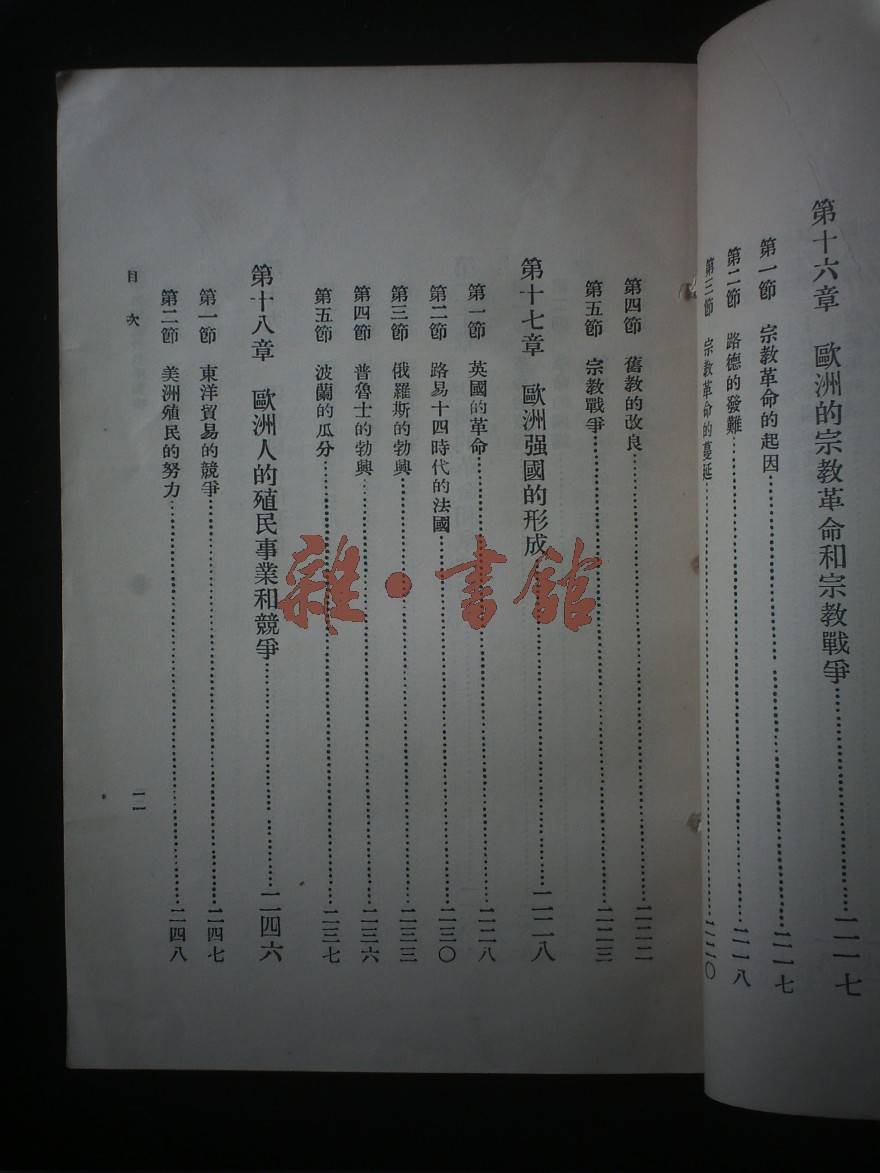 第十六章　歐洲的宗教革命和宗教戰爭……二一七
第一節　宗教革命的起因……二一七
第二節　路德的發難……二一八
第三節　宗教革命的蔓延……二二〇
第四節　舊教的改良……二二二
第五節　宗教戰爭……二二三
第十七章　歐洲强國的形成……二二八
第一節　英國的革命……二二八
第二節　路易十四時代的法國……二三〇
第三節　俄羅斯的勃興……二三三
第四節　普魯士的勃興……二三六
第五節　波蘭的瓜分……二三七
第十八章　歐洲人的殖民事業和競爭……二四六
第一節　東洋貿易的競爭……二四七
第二節　美洲殖民的努力……二四八
目次
一一
雜·書館